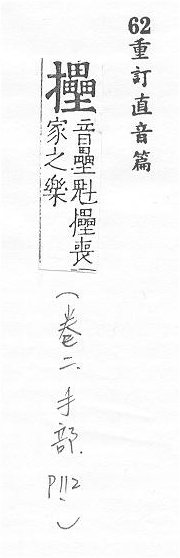 62重訂直音篇
音壘魁喪
家之樂
（卷二.手部.P112.）